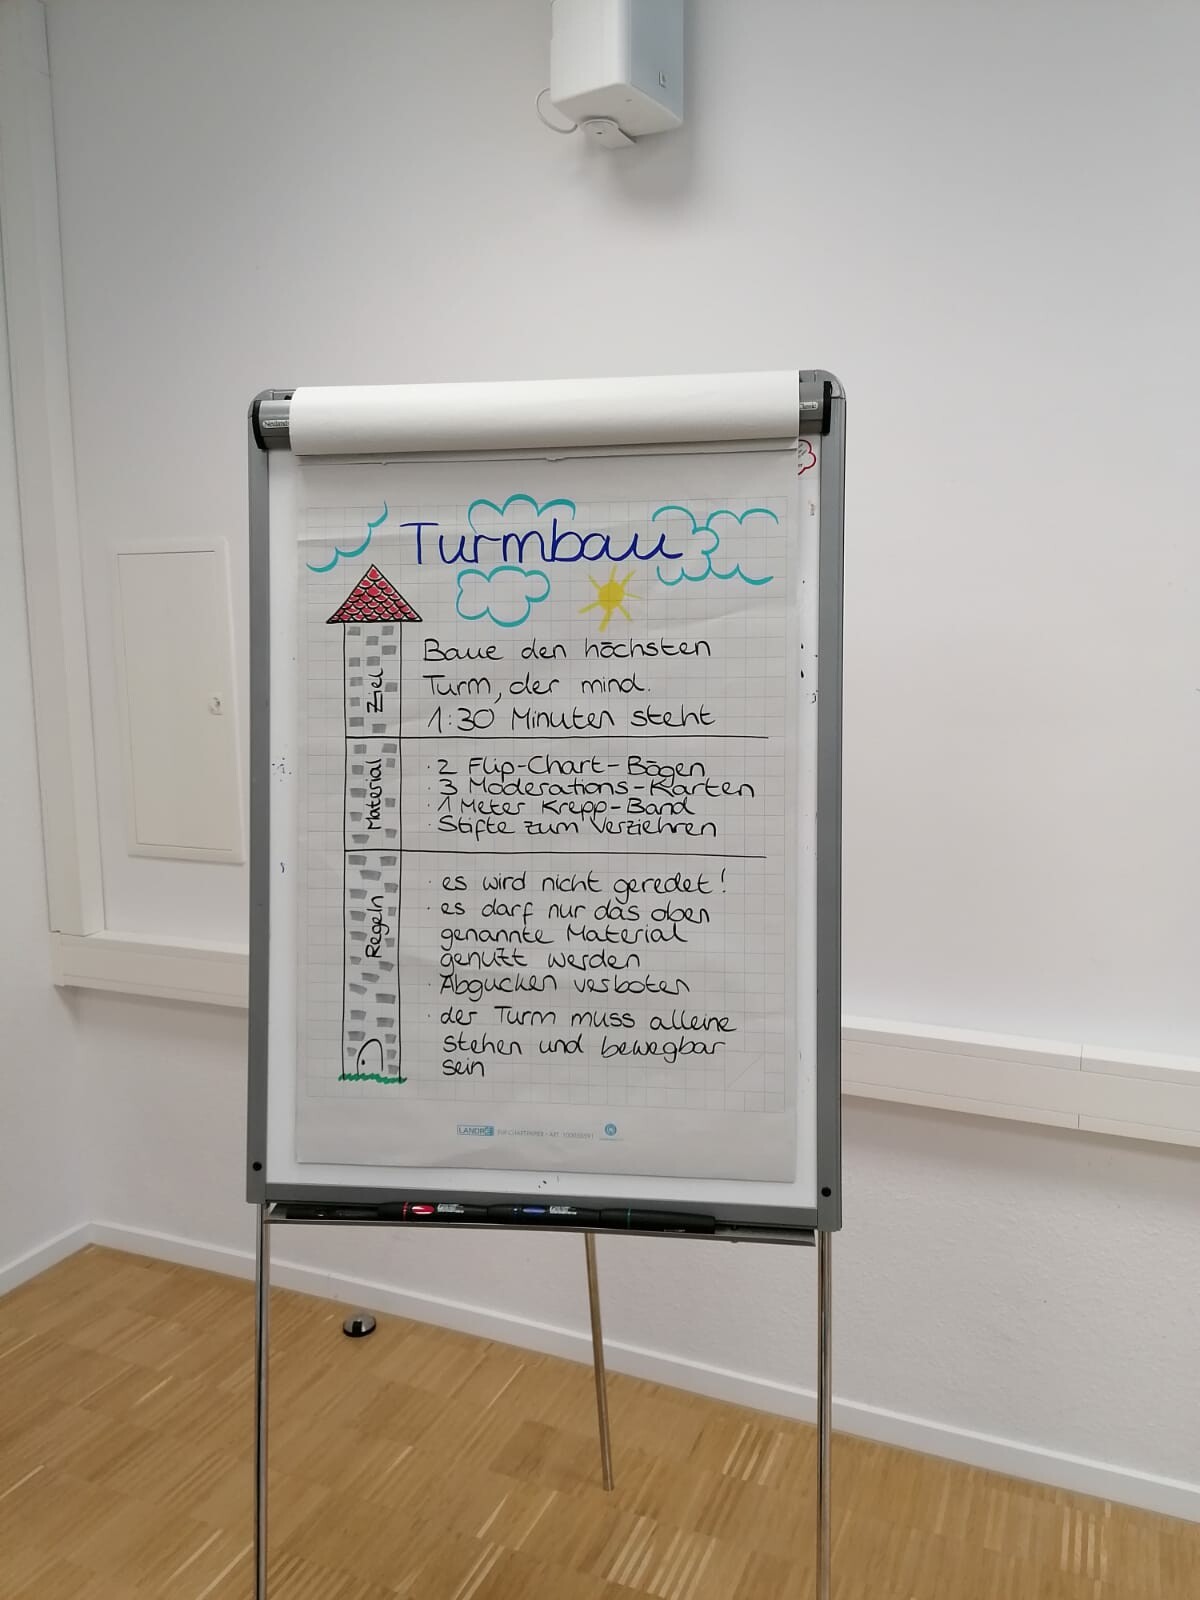 Turmbau
Ziel
Baue den höchsten
Turm, der mind.
1:30 Minuten steht
Material
· 2 Flip-Chart-Bögen
· 3 Moderations-Karten
· 1 Meter Krepp-Band
· Stifte zum Verziehren
Regeln
· es wird nicht geredet!
· es darf nur das oben
genannte Material
genutzt werden
· Abgucken verboten
· der Turm muss alleine
stehen und bewegbar
sein
LANDRÉ